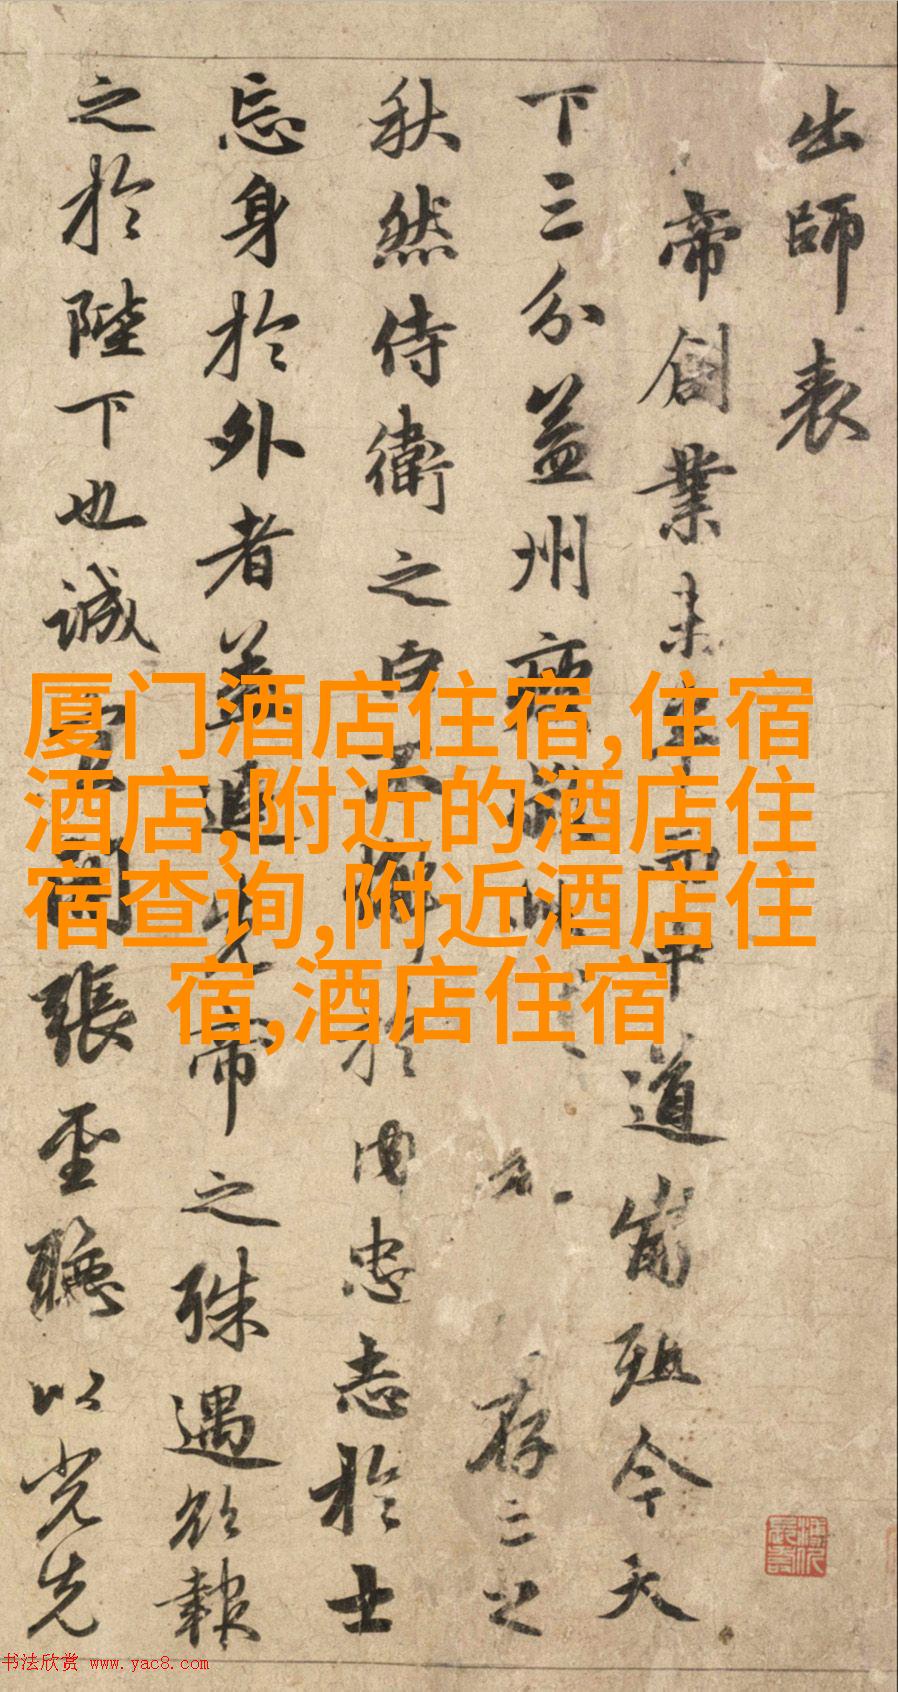 出師表
帝創業未半而中道崩殂今天
下三分益州疲弊此存亡之
秋然侍衛之臣不懈於内忠志於士
忘身於外者蓋追先帝之殊遇欲報
之於陛下也誠宜開張聖聽以光先
厦门酒店住宿,住宿
酒店,附近的酒店住
宿查询,附近酒店住
宿,酒店住宿
书法欣赏 www.yac8.com